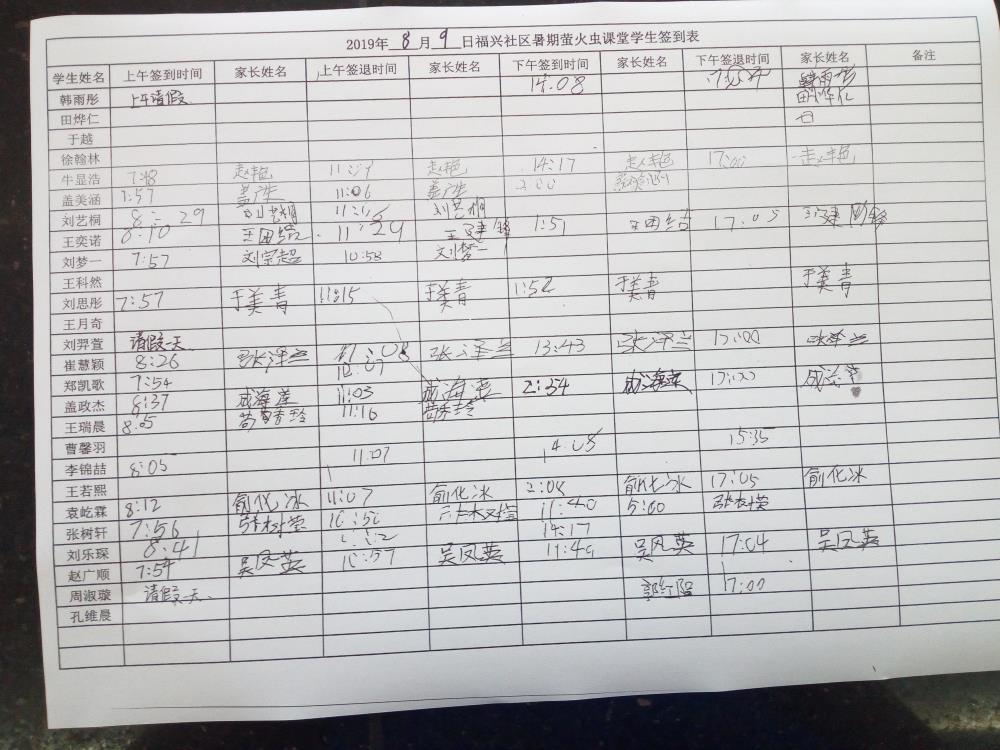 2019年 8 月 9 日福兴社区暑期萤火虫课堂学生签到表
学生姓名 上午签到时间 家长姓名 上午签退时间 家长姓名 下午签到时间 家长姓名 下午签退时间 家长姓名 备注
韩雨彤 上午请假 14:08 韩雨彤
田烨仁 田烨仁
于越
徐翰林
牛显浩 7:48 赵艳 赵艳 14:17 赵艳 17:00 赵艳
盖美涵 7:57 盖广生 11:06 盖广生
刘艺桐 8:29 刘艺桐 11:16 刘艺桐
王奕诺 8:10 王团结 11:29 1:51 王团结 17:05
刘梦一 7:57 刘宗超 10:58 刘梦一
王科然
刘思彤 7:57 于美青 11:15 于美青 1:52 于美青 于美青
王月奇
刘羿萱 请假一天
崔慧颖 8:26 张泽兰 11:08 张泽兰 13:43 张泽兰 17:00 张泽兰
郑凯歌 7:54
盖政杰 8:37 成海莲 11:03 成海莲 2:34 成海莲 17:00
王瑞晨 8:05 11:16
曹馨羽 14:08 15:35
李锦喆 8:05 11:07
王若熙
袁屹霖 8:12 俞化冰 11:07 俞化冰 2:08 俞化冰 17:05 俞化冰
张树轩 7:56 张树莹 10:50 11:40 5:00 张树莹
刘乐琛 8:41 14:17
赵广顺 7:54 吴凤英 10:57 吴凤英 11:49 吴凤英 17:04 吴凤英
周淑璇 请假一天
孔维晨 郭红阳 17:00